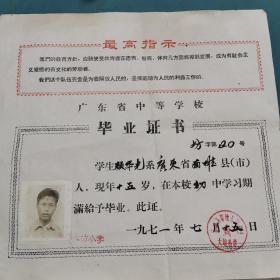 最高指示
我們的教育方針，应該使受教育者在德育、智育、体育几方面都得到发展，成为有社会主义觉悟的有文化的劳动者。
我們这个队伍完全是为着解放人民的，是彻底地为人民的利益工作的。
广东省中等学校
毕业证书
字第20号
学生 系广东省南雄县(市)
人，现年十五岁，在本校初中学习期
滿給予毕业。此证。
一九七一年七月十五日